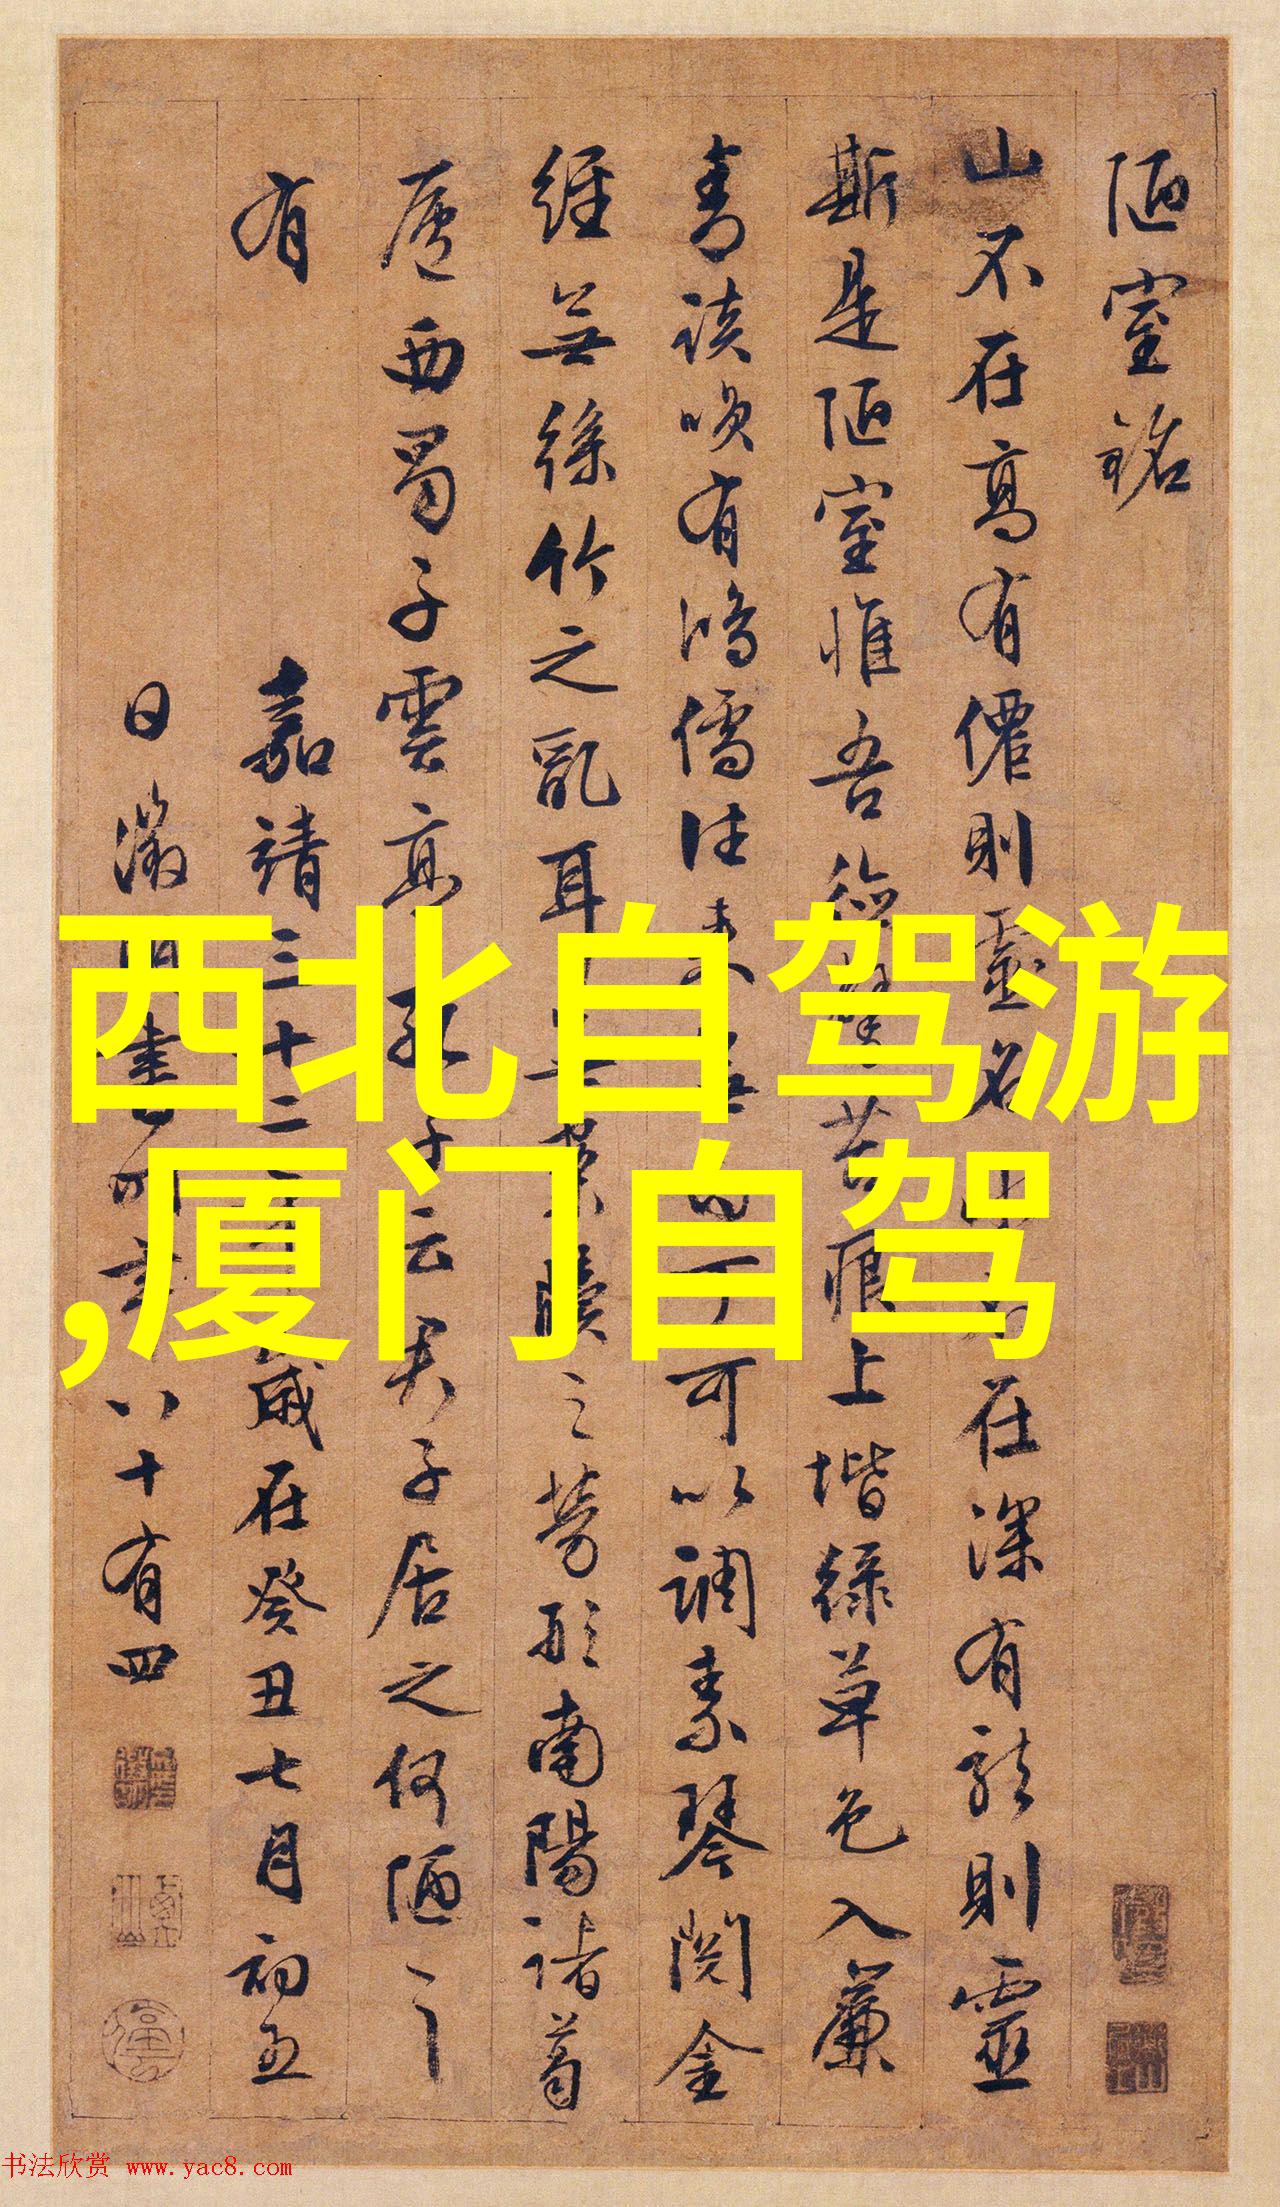 陋室銘
山不在高有僊則靈名水不在深有龍則靈
斯是陋室惟吾德馨苔痕上堦綠草色入簾
青談唉有鴻儒往來無白丁可以調素琴閱金
經無絲竹之亂耳無案牘之勞形南陽諸葛
廬西蜀子雲亭孔子云君子居之何陋之
有
嘉靖三十二年歲在癸丑七月初五
日徵明書時年八十有四
西北自驾游
,厦门自驾
书法欣赏 www.yac8.com